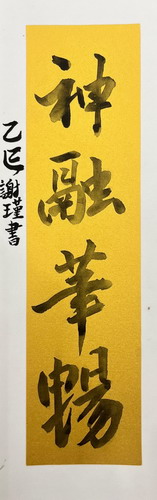 神融華暢
乙巳謝瑾書